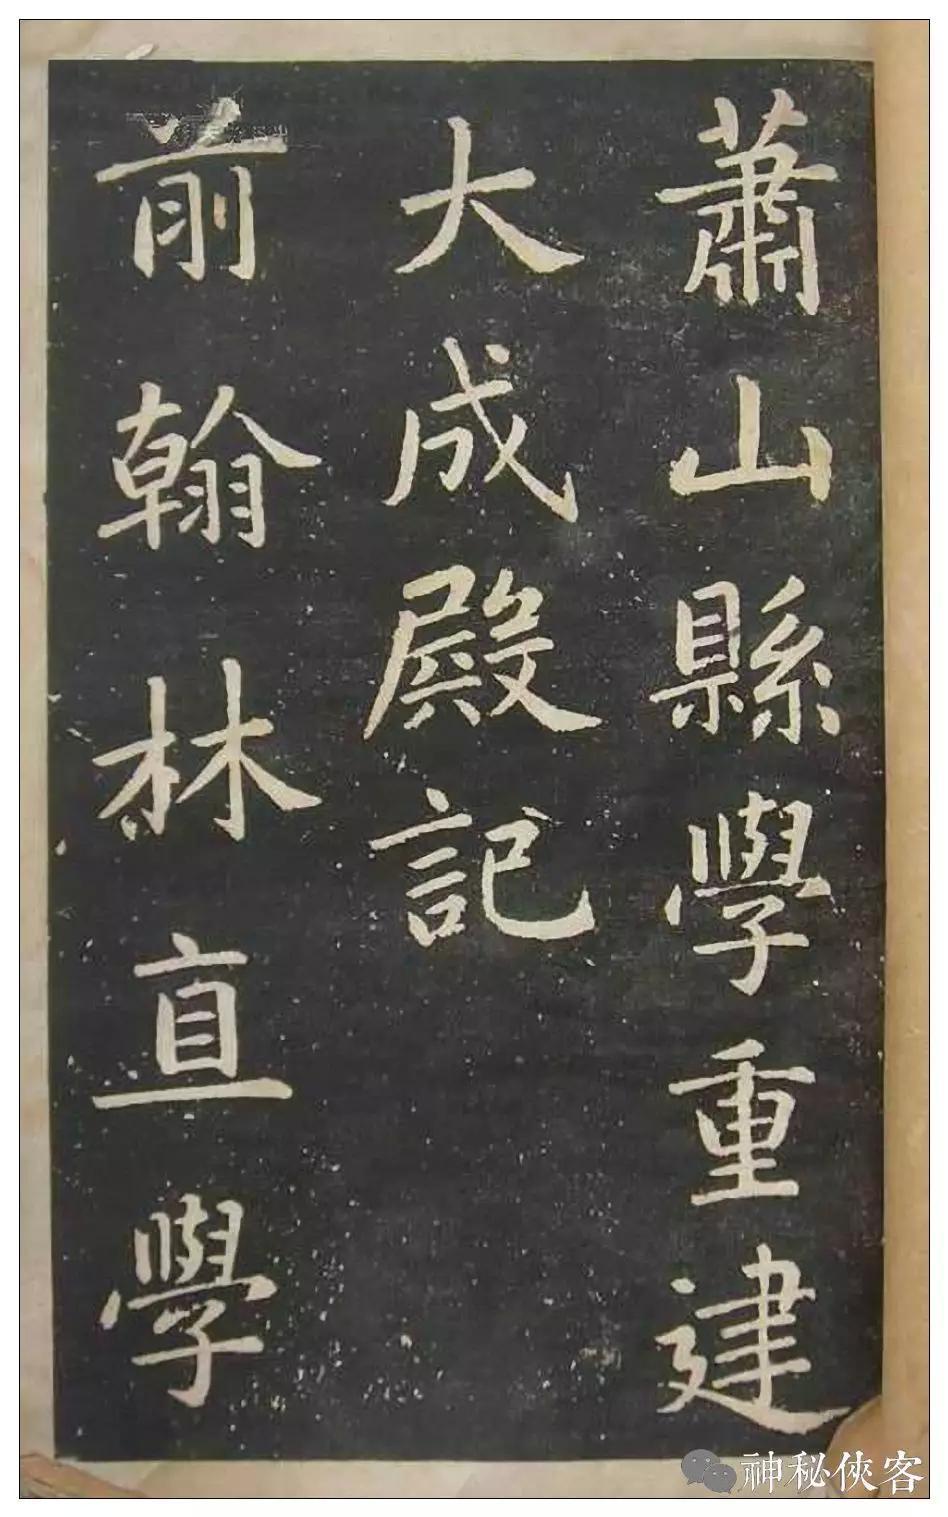 蕭山縣學重建
大成殿記
前翰林直學
神秘俠客